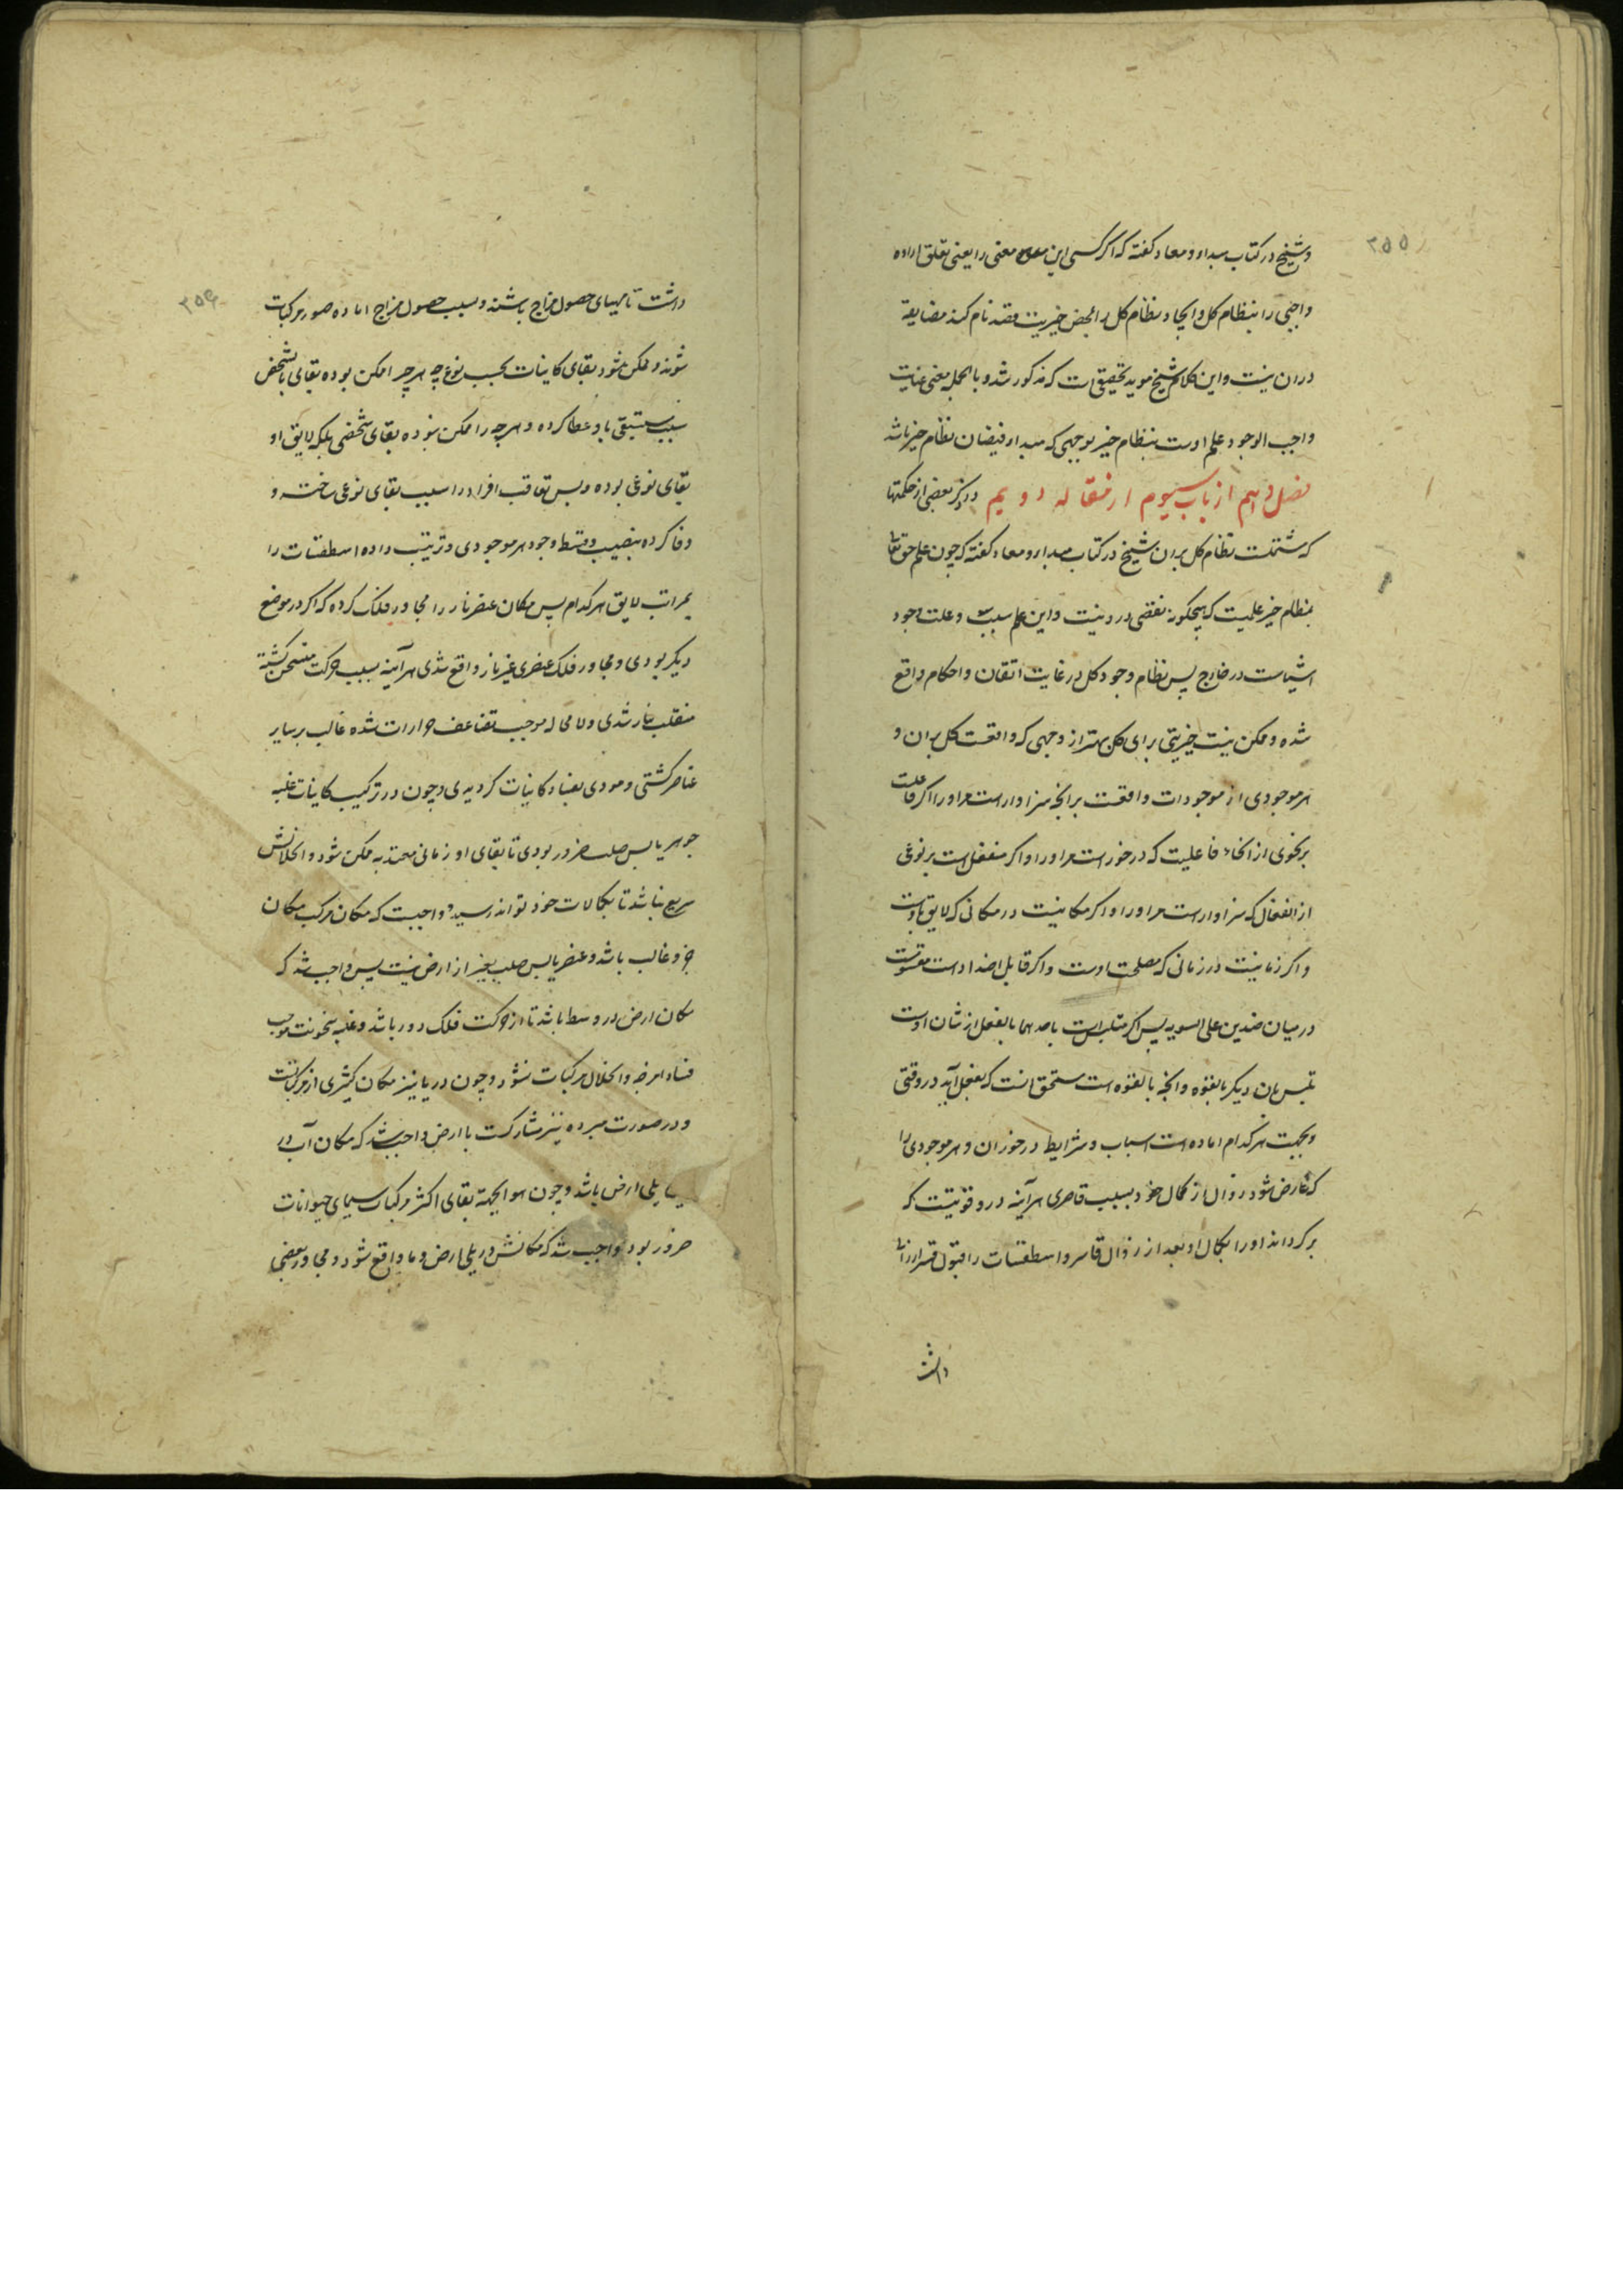 ۲۵۵
و شیخ در کتاب مبداء و معاد کفته که اکر کسی این معنی را یعنی تعلق اراده
واجبی را بنظام کل و ایجاد نظام کل را لمحض خیریت قصد نام کند مضایقه
در ان نیست و این کلام شیخ موید تحقیقی است که مذکور شد و بالجمله معنی عنایت
واجب الوجود علم اوست بنظام خیر بوجهی که مبداء فیضان نظام خیر باشد
فصل دهم از باب سیوم از مقاله دویم در ذکر بعضی از حکمتها
که مشتملست نظام کل بران شیخ در کتاب مبداء و معاد کفته که چون علم حق تعالی
بنظام خیر علمیست که هیچکونه نقصی درو نیست و این علم سبب و علت وجود
اشیاست در خارج پس نظام وجود کل در غایت اتقان و احکام واقع
شده و ممکن نیست خیریتی برای کل بهتر از وجهی که واقعست کل بران و
هر موجودی از موجودات واقعست برانچه سزاوار است مر او را اکر فاعلست
بر نحوی از انحاء فاعلیت که در خور است مر او را و اکر منفعل است بر نوعی
از انفعال که سزاوار است مر او را و اکر مکانیست در مکانی که لایق باوست
و اکر زمانیست در زمانی که مصلحت اوست و اکر قابل اضداد است مقسوم است
در میان ضدین علی السویه پس اکر متلبس است باحدهما بالفعل از شان اوست
تلبس بان دیکر بالقوه و انچه بالقوه است مستحق انست که بفعل آید در وقتی
و بجهت هر کدام اماده است اسباب و شرایط در خور ان و هر موجودی را
که عارض شود زوال از کمال خود بسبب قاصری هر آینه درو قوتیست که
بر کرداند او را بکمال او بعد از زوال قاسر و اسطقسات را قبول قسر ارزانی
داشت
۲۵۶
داشت تا مهیای حصول مزاج باشند و بسبب حصول مزاج اماده صور مرکبات
شوند و ممکن شود بقای کاینات بحسب نوع چه هر چیز ممکن بوده بقای بالشخص
سبب مستبقی باو عطا کرده و هر چه را ممکن نبوده بقای شخصی بلکه لایق او
بقای نوعی بوده و بس تعاقب افراد را سبب بقای نوعی ساخته و
وفا کرده بنصیب و قسط وجود هر موجودی و ترتیب داده اسطقسات را
بمراتب لایق هر کدام پس مکان عنصر نار را مجاور فلک کرده که اکر در موضع
دیکر بودی و مجاور فلک عنصری غیر نار واقع شدی هر آینه بسبب حرکت متسخن کشته
منقلب بنار شدی و لا محاله موجب تضاعف حرارات شده غالب بر سایر
عناصر کشتی و مودی بفساد کاینات کردیدی و چون در ترکیب کاینات غلبه
جوهر یابس صلب ضرور بودی تا بقای او زمانی معتد به ممکن شود و انحلالش
سریع نباشد تا بکمالات خود تواند رسید و واجبست که مکان مرکب مکان
جزو غالب باشد و عنصر یابس صلب بغیر از ارض نیست پس واجب شد که
مکان ارض در وسط باشد تا از حرکت فلک دور باشد و غلبه سخونت موجب
فساد امزجه و انحلال مرکبات نشود و چون دریا نیز مکان کثیری از مرکباتست
و در صورت مبرده نیز مشارکست با ارض واجب شد که مکان آب در
یلی ارض باشد و چون هوا بجهة بقای اکثر مرکبات سیمای حیوانات
ضرور بود واجب شد که مکانش در یلی ارض و ما واقع شود و مجاور بعضی